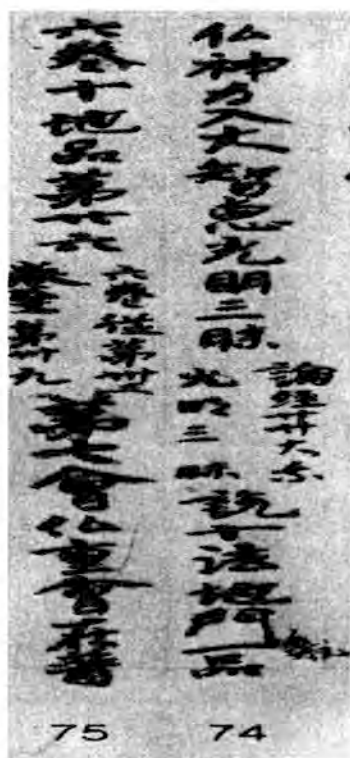 仏神力入大智恵光明三昧
論経
光明三昧
説法地門一品
六巻十地品第廿六
六巻従第卅
巻至第卅九
第七會仏重會普
74
75